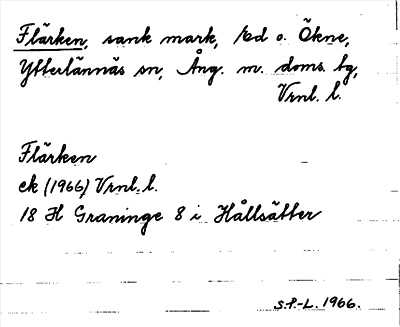 Flärken, sank mark, /Ed o. Ökne,
Ytterlännäs sn, Ång. m. doms. bg,
Vrnl. l.
Flärken
ek (1966) Vrnl. l.
18 H Graninge 8 i Hållsätter
S.P.-L. 1966.